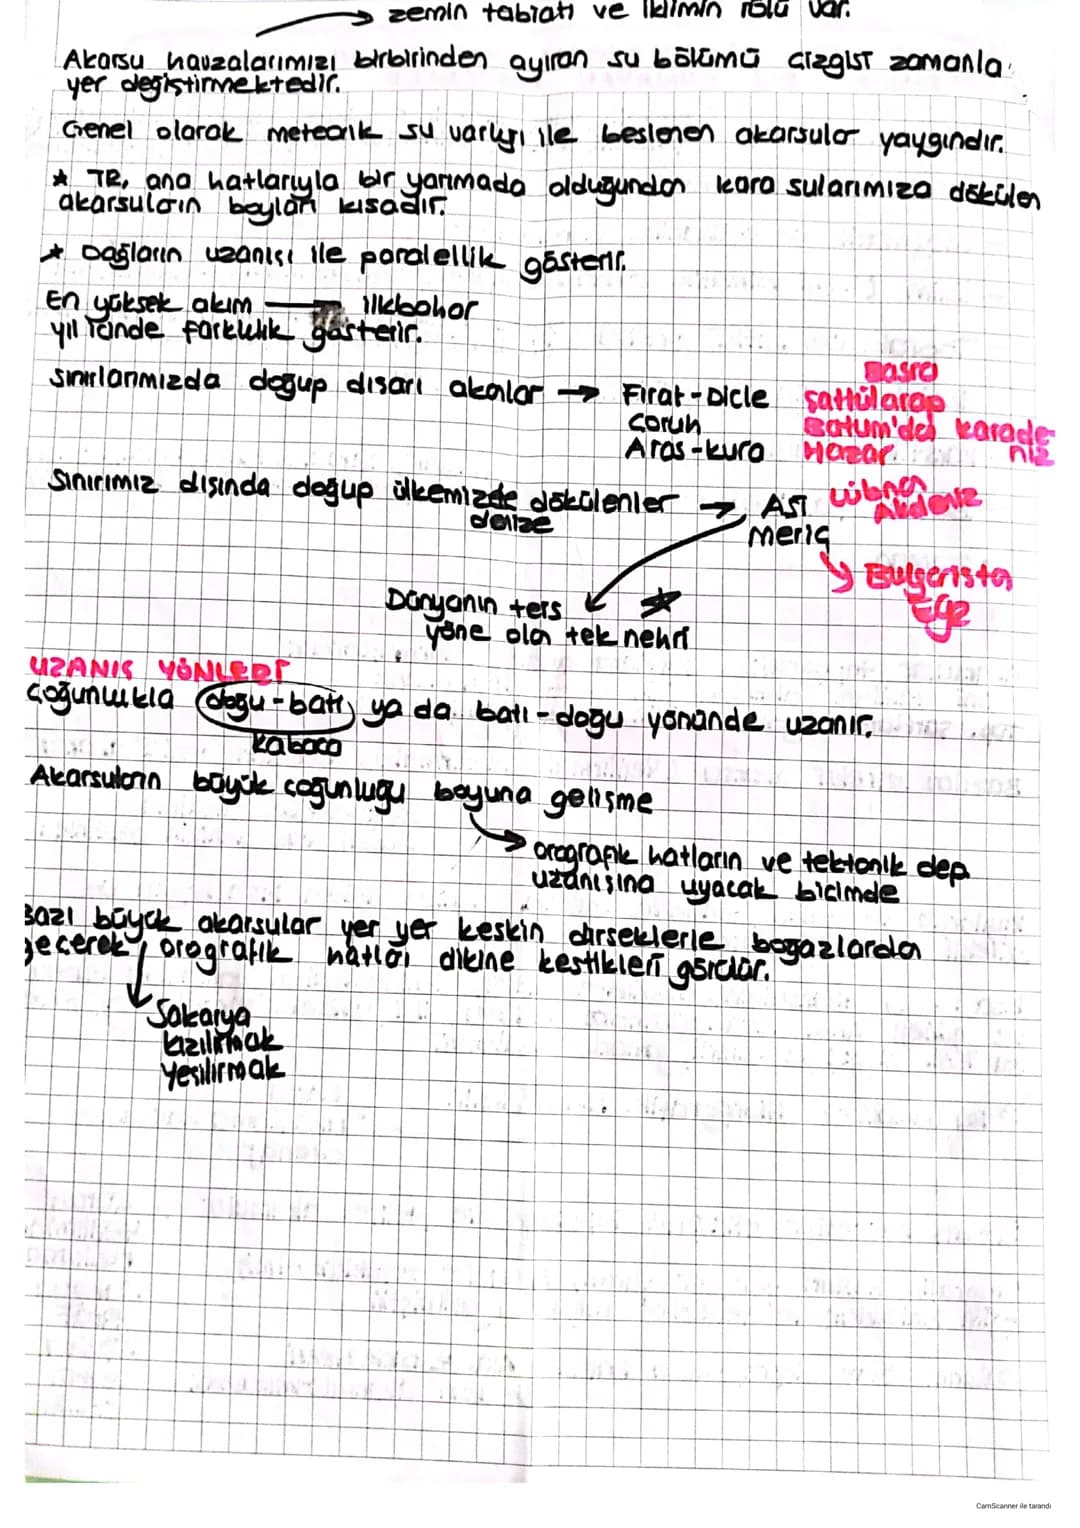 → zemin tabiatı ve iklimin rolü var.
Akarsu havzalarımızı birbirinden ayıran su bölümü çizgisi zamanla
yer değiştirmektedir.
Genel olarak meteorik su varlığı ile beslenen akarsular yaygındır.
★ TR, ana hatlarıyla bir yarımada olduğundan kara sularımıza dökülen
akarsuların boyları kısadır.
★ Dağların uzanışı ile paralellik gösterir.
En yüksek akım → ilkbahar
yıl içinde farklılık gösterir.
Sınırlarımızda doğup dışarı akanlar → Fırat-Dicle Basra
Şattülarap
Çoruh Batum'da Karadeniz
Aras-Kura Hazar
Sınırımız dışında doğup ülkemizde dökülenler → ASİ Lübnan
Akdeniz
denize
meriç
↘ Bulgarista
Ege
Dünyanın ters ★
yöne olan tek nehri
UZANIŞ YÖNLERİ
Çoğunlukla doğu-batı ya da batı-doğu yönünde uzanır.
kabaca
Akarsuların büyük çoğunluğu boyuna gelişme
→ orografik hatların ve tektonik dep.
uzanışına uyacak biçimde
Bazı büyük akarsular yer yer keskin dirseklerle boğazlardan
geçerek, orografik hatları dikine kestikleri görülür.
↓ Sakarya
Kızılırmak
Yeşilırmak
CamScanner ile tarandı